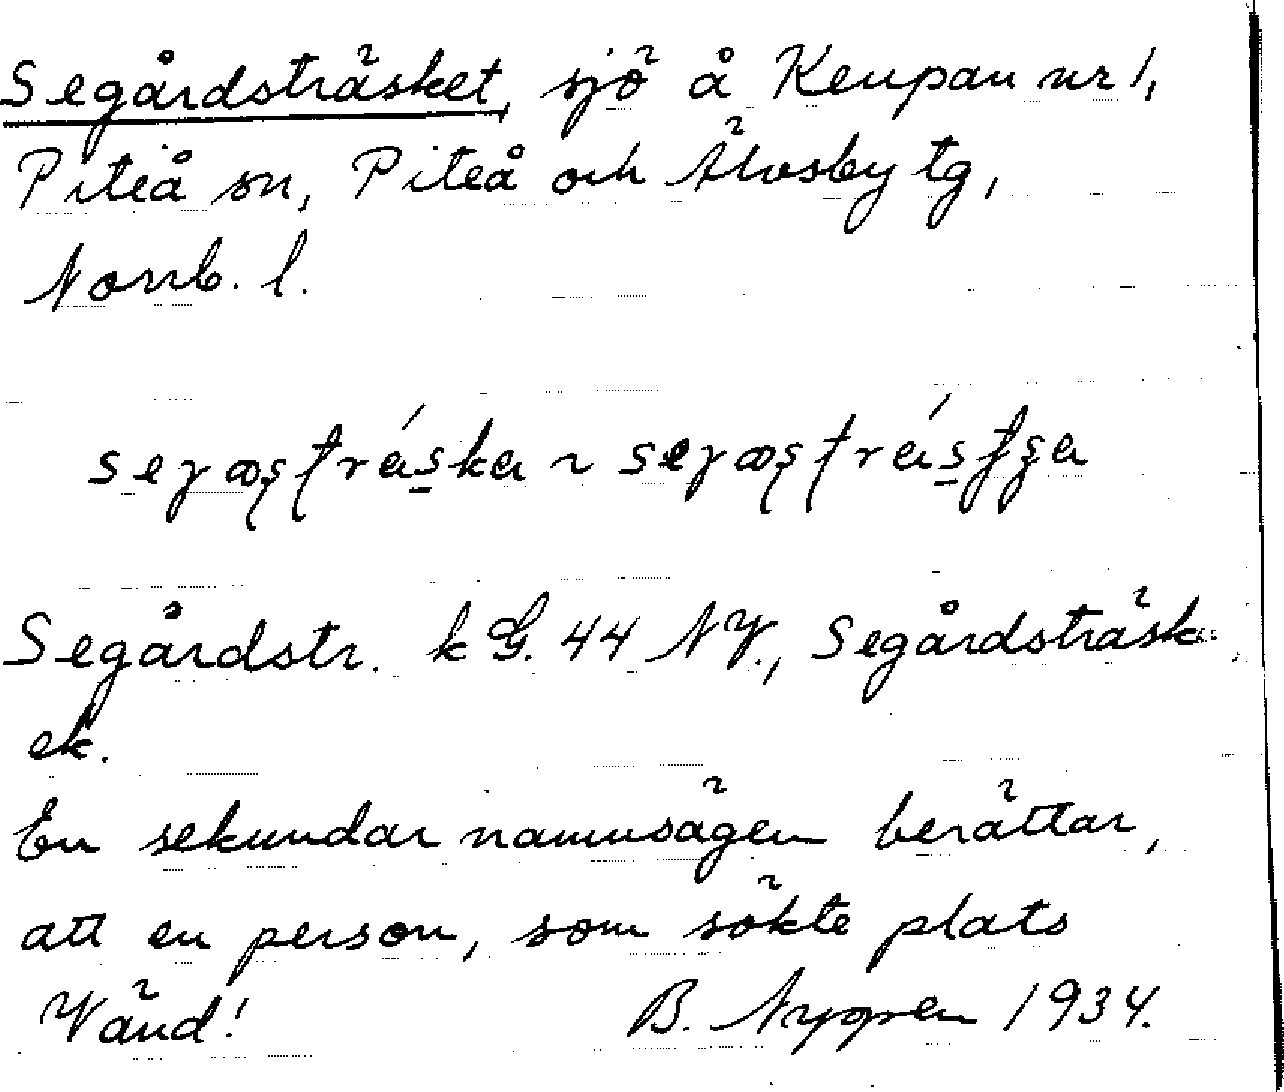 Segårdsträsket, sjö å Keupan nr 1,
Piteå sn, Piteå och Älvsby tg,
Norrb. l.
Segårdstr. k G. 44 NV., Segårdsträsk
ek.
En sekundär namnsägen berättar,
att en person, som sökte plats
Vänd! B. Nygren 1934.